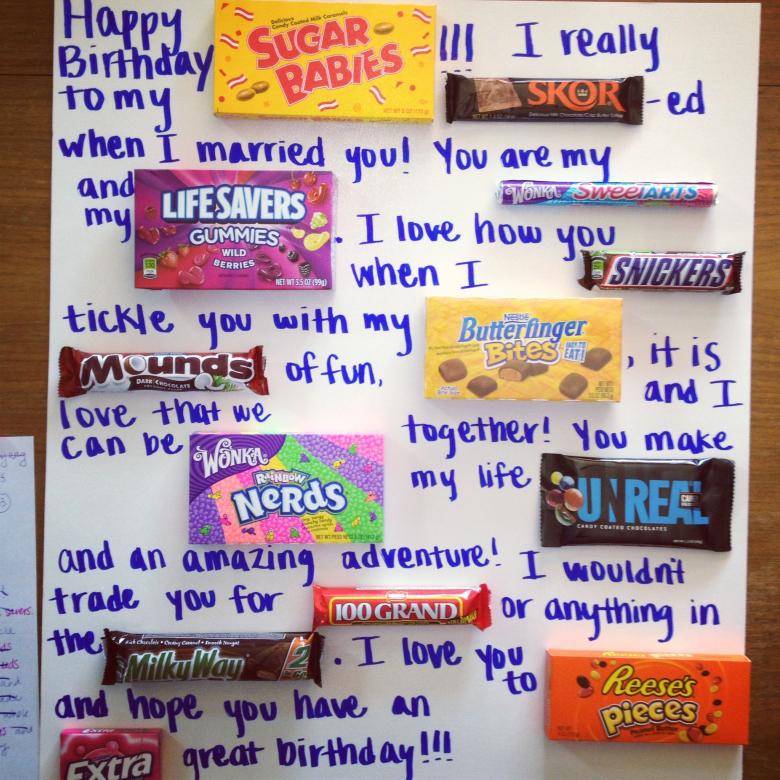 Happy
Birthday
to my
Delicious
Candy Coated Milk Caramels
SUGAR
BABIES
!!! I really
SKOR
-ed
when I married you! You are my
and
my
LIFE SAVERS
GUMMIES
WILD
BERRIES
NET WT 3.5 OZ (99g)
WONKA SweeTARTS
. I love how you
SNICKERS
when I
tickle you with my
Nestlé
Butterfinger
Bites
EASY TO
EAT!
, it is
Mounds
DARK CHOCOLATE
of fun,
and I
love that we
can be
WONKA
RAINBOW
NERDS
together! You make
my life
UNREAL
CANDY COATED CHOCOLATES
and an amazing adventure! I wouldn't
trade you for
100 GRAND
or anything in
the
Rich Chocolate • Creamy Caramel • Smooth Nougat
Milky Way
2
. I love you
to
Reese's
pieces
and hope you have an
Extra
great birthday!!!